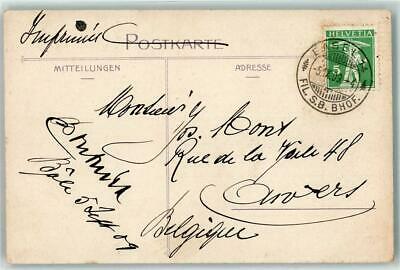 Imprimés
POSTKARTE
MITTEILUNGEN
ADRESSE
HELVETIA
BASEL
FIL. S.B. BHOF.
Monsieur
Jos. Mont
Rue de la Joile 48
Anvers
Belgique
Bâle 5 Sept 09